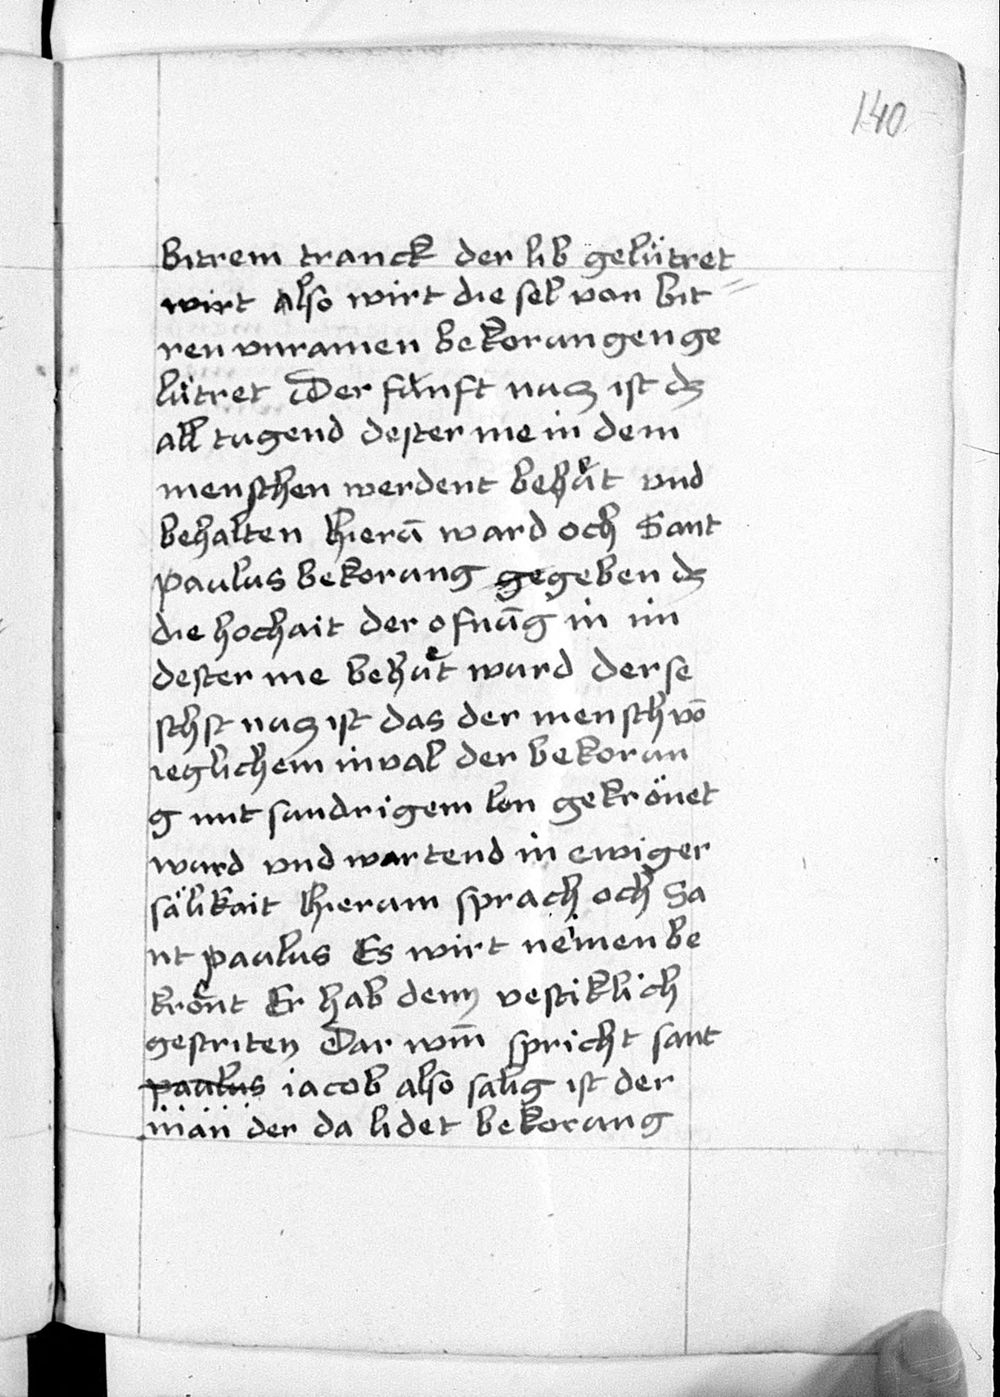 140
bitrem tranck der lib gelütret
wirt Also wirt die sel von bit
ren vnramen bekorungen ge
lütret Der fünft nucz ist dz
all tugend dester me in dem
menschen werdent behuͤt vnd
behalten hierū ward och Sant
paulus bekorung ge geben dz
die hochait der ofnūg in im
dester me behuͤt wurd der se
schst nucz ist das der mensch vō
ieglichem inval der bekorun
g mit sundrigem lon gekrönet
wurd vnd wartend in ewiger
sälikait hierum sprach och Sa
nt paulus Es wirt niemen be
kroͤnt Er hab denn vestiklich
gestriten Dar wm̄ spricht sant
paulus iacob also salig ist der
man der da lidet bekorung